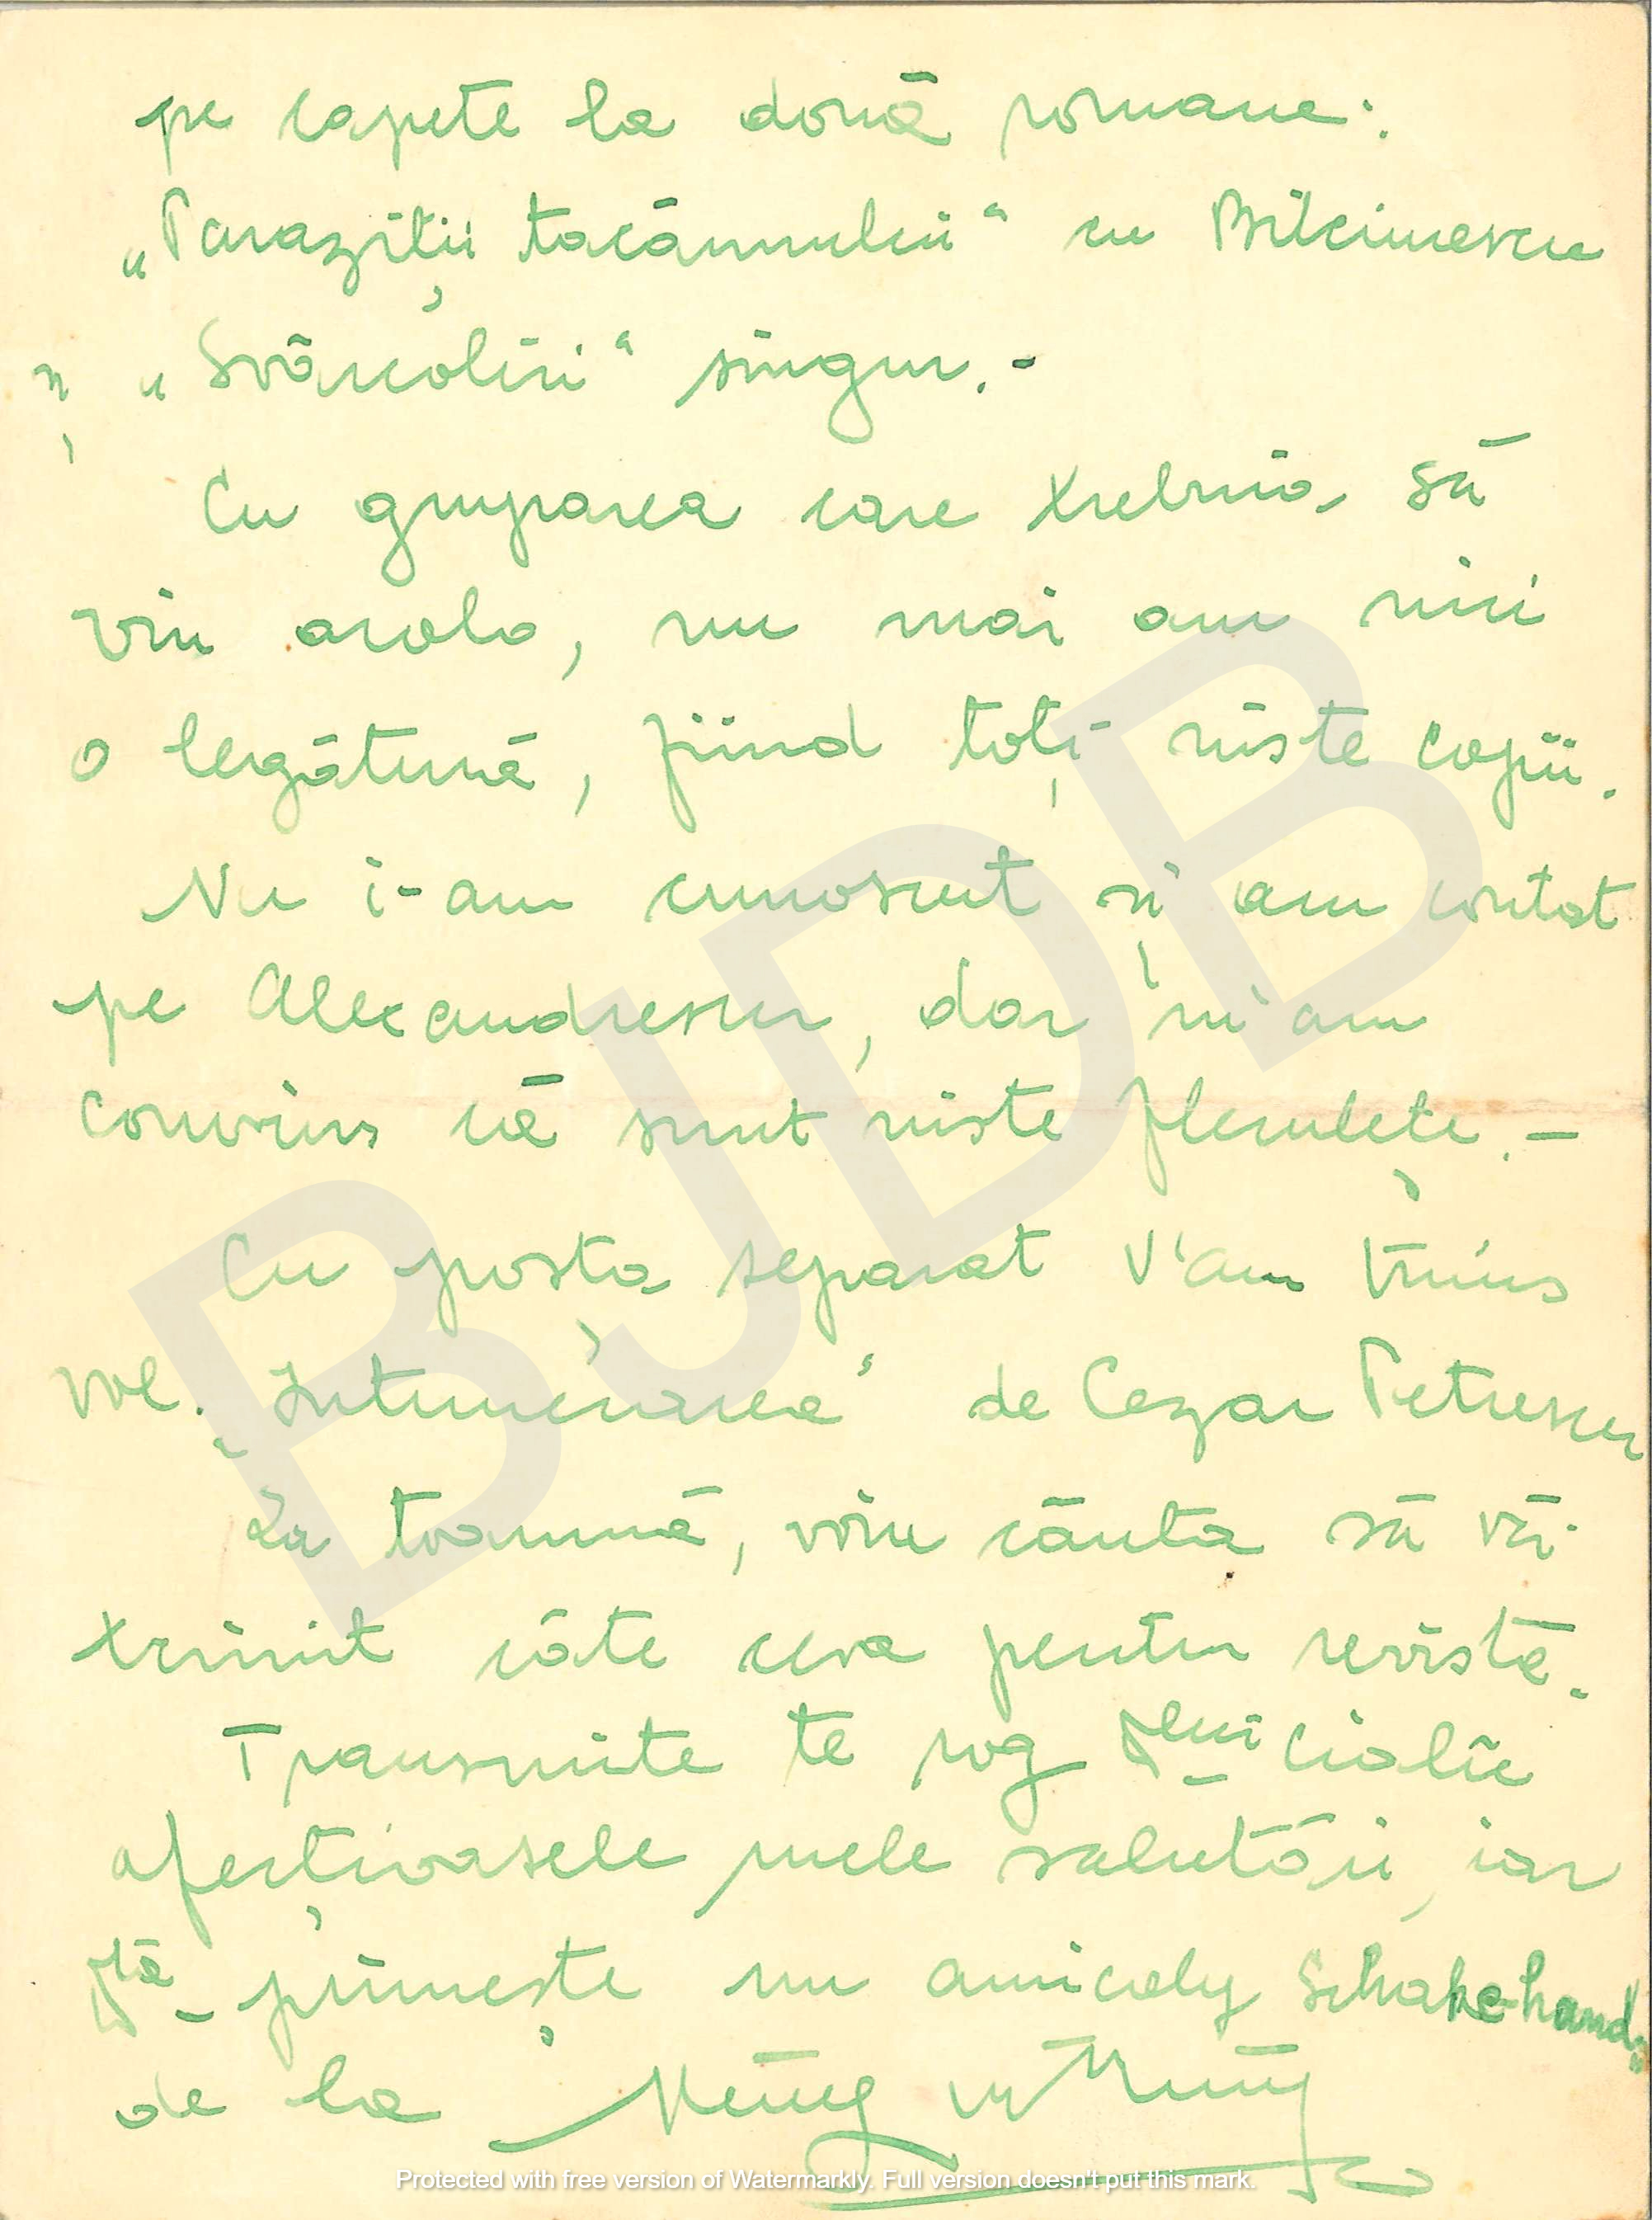 pe capete la două romane:
„Paraziții tacâmului“ cu Bilciurescu
și „Svârcoliri“ singur.-
Cu gruparea care trebuia să
viu acolo, nu mai am nici
o legătură, fiind toți niste copii.
Nu i-am cunoscut și am contat
pe Alexandrescu, dar m'am
convins că sunt niste flenulețe.-
Cu poșta separat v'am trimis
vol. „Intunecarea“ de Cezar Petrescu
La toamnă, voiu căuta să vă
trimit câte ceva pentru revistă.
Transmite te rog Dlui Cialîc
afecțioasele mele salutări, iar
Dta primește un amical Schake-hand,
de la
BJDB
Protected with free version of Watermarkly. Full version doesn't put this mark.